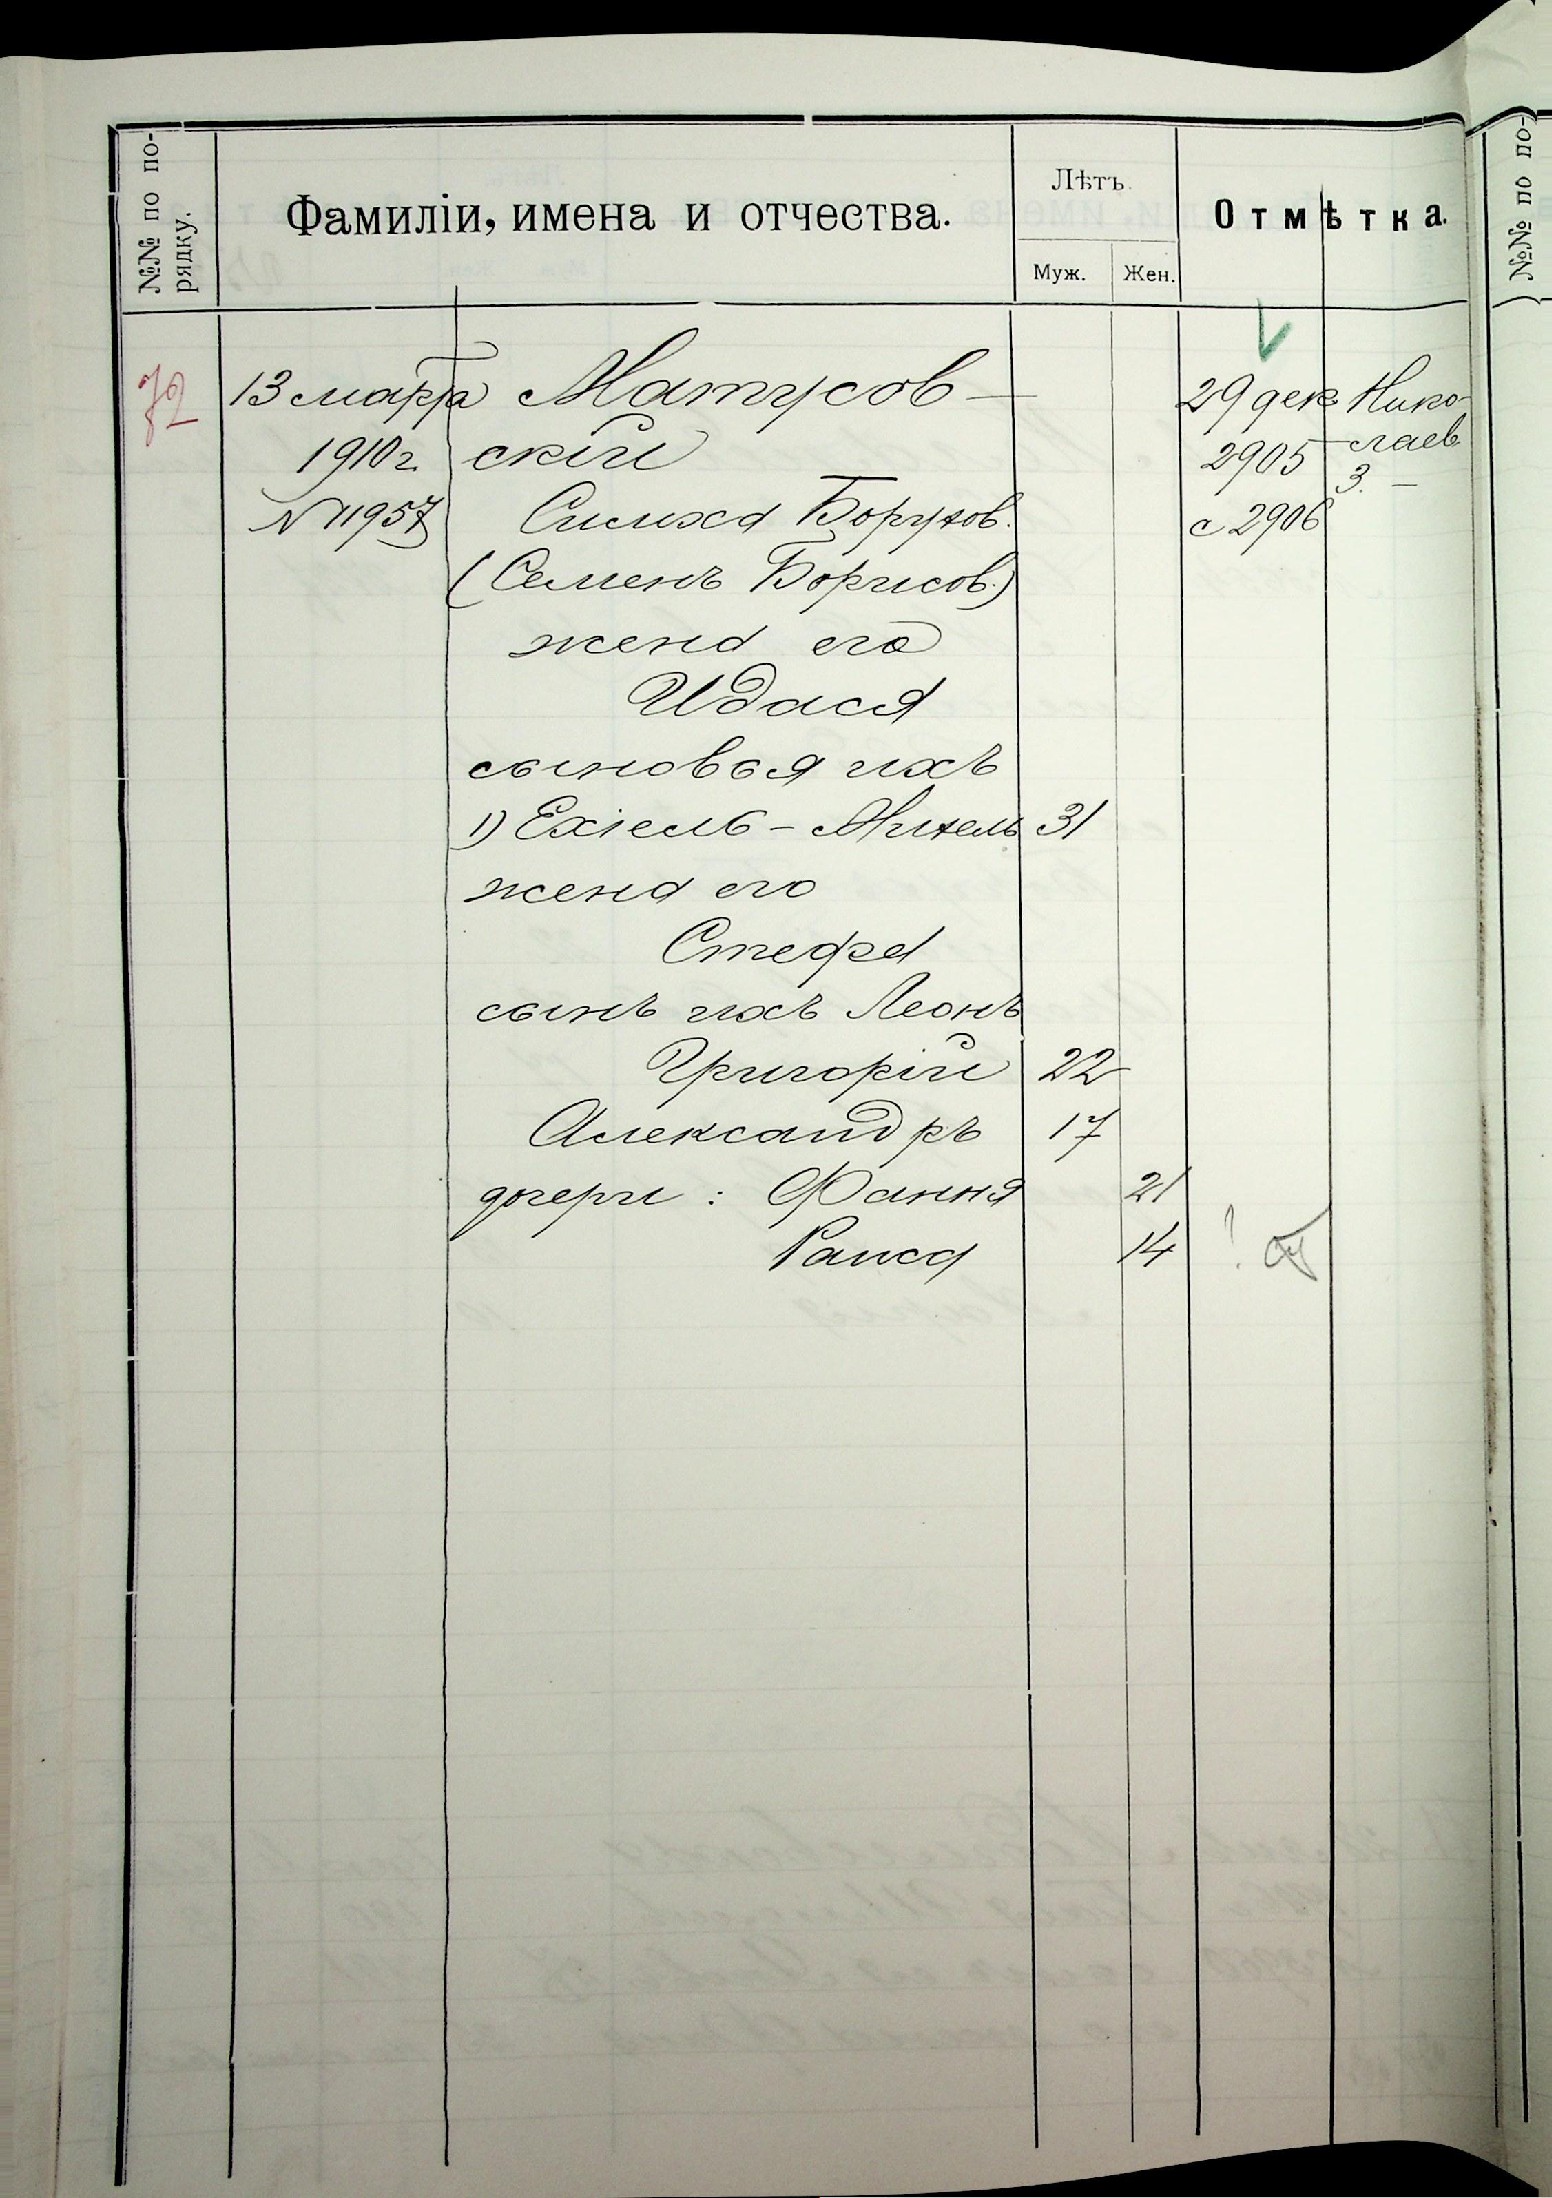 №№ по по-
рядку.
Фамиліи, имена и отчества.
Лѣтъ.
Муж.
Жен.
Отмѣтка.
№№ по по-
72
13 марта
1910 г.
№ 11957
Матусов-
скій
Симха Борухов.
(Семенъ Борисов.)
жена его
Идася
сыновья ихъ
1) Ехіель - Михель 31
жена его
Стефа
сынъ ихъ Леонъ
Григорій 22
Александръ 17
дочери: Фання 21
Раиса 14
29 дек.
2905
с 2906
Нико-
лаев
3. —